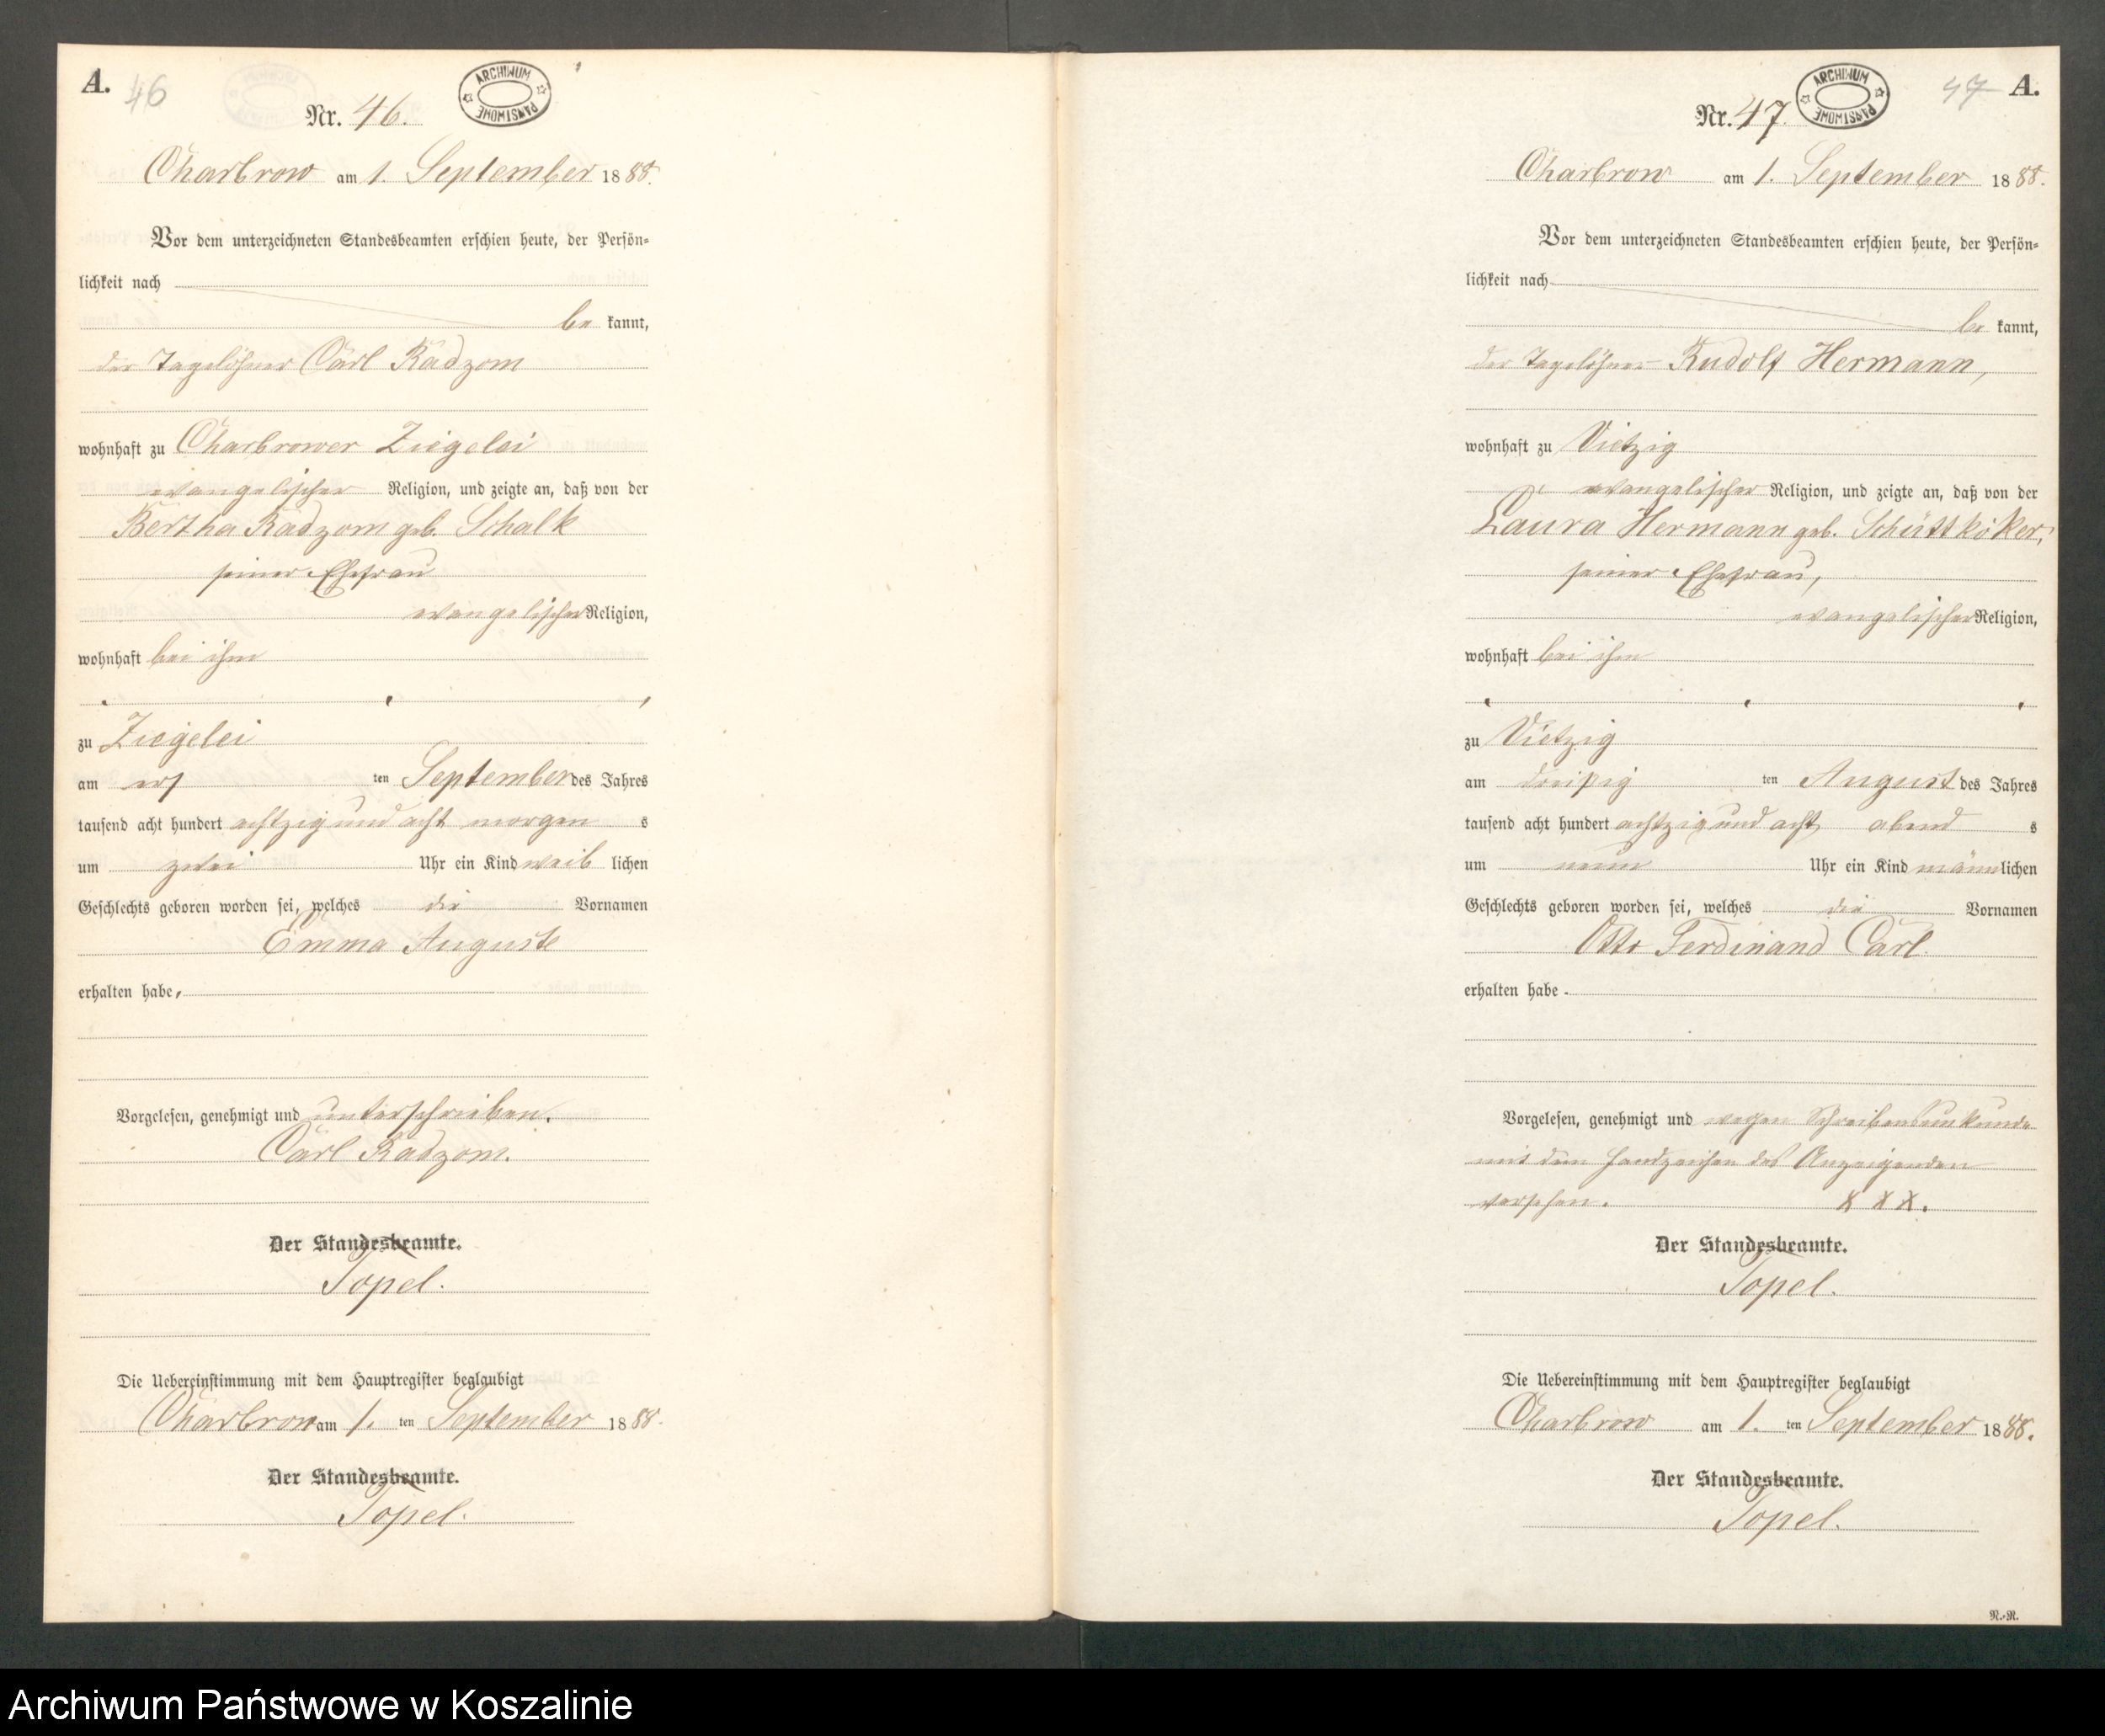 A. 46
ARCHIWUM PAŃSTWOWE
Nr. 46.
Charbrow am 1. September 1888.
Vor dem unterzeichneten Standesbeamten erschien heute, der Persön-
lichkeit nach
be kannt,
der Tagelöhner Carl Radzom
wohnhaft zu Charbrower Ziegelei
evangelischer Religion, und zeigte an, daß von der
Bertha Radzom geb. Schalk
seiner Ehefrau
evangelischer Religion,
wohnhaft bei ihm
zu Ziegelei
am ersten September des Jahres
tausend acht hundert achtzig und acht morgens
um zwei Uhr ein Kind weiblichen
Geschlechts geboren worden sei, welches die Vornamen
Emma Auguste
erhalten habe,
Vorgelesen, genehmigt und unterschrieben.
Carl Radzom.
Der Standesbeamte.
Topel.
Die Uebereinstimmung mit dem Hauptregister beglaubigt
Charbrow am 1. ten September 1888.
Der Standesbeamte.
Topel.
47 A.
ARCHIWUM PAŃSTWOWE
Nr. 47.
Charbrow am 1. September 1888.
Vor dem unterzeichneten Standesbeamten erschien heute, der Persön-
lichkeit nach
be kannt,
der Tagelöhner Rudolf Hermann,
wohnhaft zu Vietzig
evangelischer Religion, und zeigte an, daß von der
Laura Hermann geb. Schüttköker,
seiner Ehefrau,
evangelischer Religion,
wohnhaft bei ihm
zu Vietzig
am dreißigten August des Jahres
tausend acht hundert achtzig und acht abends
um neun Uhr ein Kind männlichen
Geschlechts geboren worden sei, welches die Vornamen
Otto Ferdinand Carl.
erhalten habe.
Vorgelesen, genehmigt und wegen Schreibensunkunde
mit dem Handzeichen des Anzeigenden
versehen. X X X.
Der Standesbeamte.
Topel.
Die Uebereinstimmung mit dem Hauptregister beglaubigt
Charbrow am 1. ten September 1888.
Der Standesbeamte.
Topel.
N.-N.
Archiwum Państwowe w Koszalinie